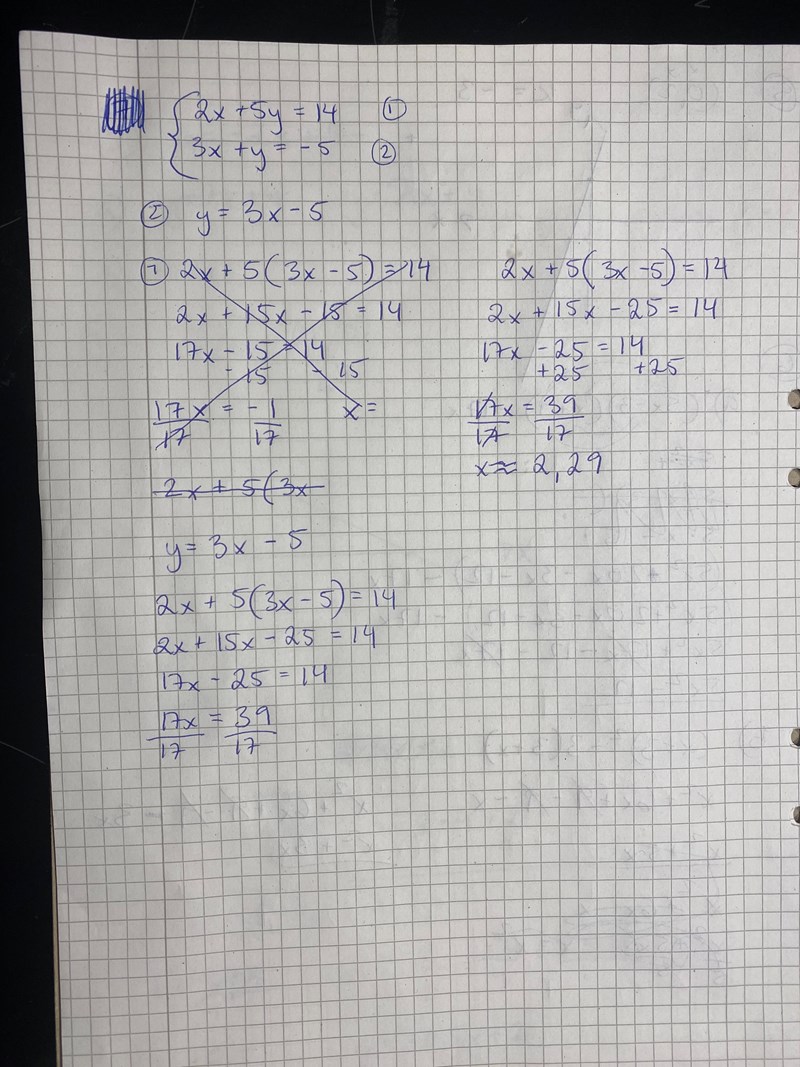 2x + 5y = 14 ①
3x + y = -5 ②
② y = 3x - 5
① 2x + 5(3x - 5) = 14
2x + 15x - 15 = 14
17x - 15 = 14
- 15 - 15
17x = -1 x =
17 17
2x + 5(3x
y = 3x - 5
2x + 5(3x - 5) = 14
2x + 15x - 25 = 14
17x - 25 = 14
17x = 39
17 17
2x + 5(3x - 5) = 14
2x + 15x - 25 = 14
17x - 25 = 14
+25 +25
17x = 39
17 17
x ≈ 2,29